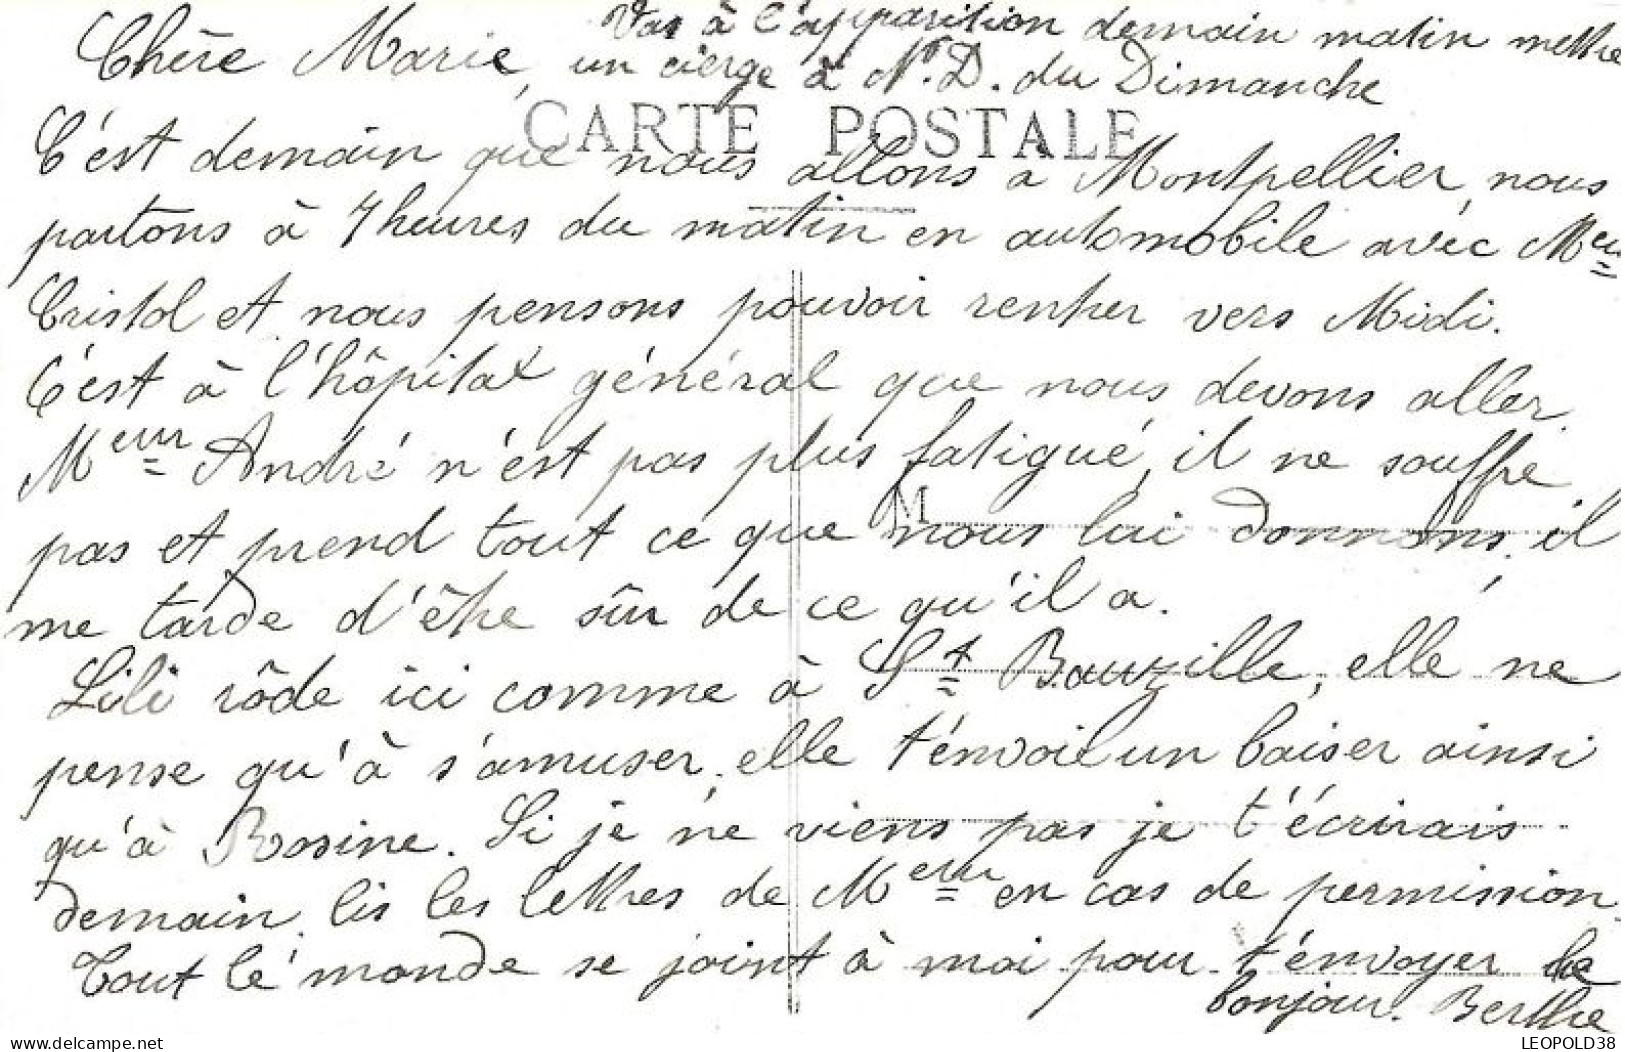 Vas à l'apparition demain matin mettre
un cierge à N.D. du Dimanche
Chère Marie,
CARTE POSTALE
C'est demain que nous allons a Montpellier, nous
partons à 7 heures du matin en automobile avec Meur
Cristol et nous pensons pouvoir rentrer vers Midi.
C'est à l'hôpital général que nous devons aller.
Meur André n'est pas plus fatigué, il ne souffre
pas et prend tout ce que nous lui donnons, il
M
me tarde d'être sûr de ce qu'il a.
Lili rôde ici comme à St Bauzille, elle ne
pense qu'à s'amuser, elle t'envoie un baiser ainsi
qu'à Rosine. Si je ne viens pas je t'écrirais
demain, lis les lettres de Meur en cas de permission.
Tout le monde se joint à moi pour t'envoyer le
bonjour. Berthe
www.delcampe.net
LEOPOLD38